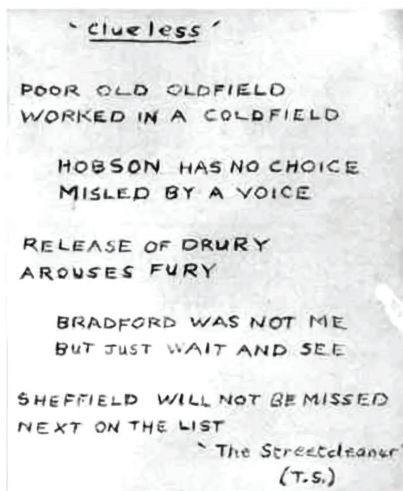 `Clueless´
POOR OLD OLDFIELD
WORKED IN A COLDFIELD
HOBSON HAS NO CHOICE
MISLED BY A VOICE
RELEASE OF DRURY
AROUSES FURY
BRADFORD WAS NOT ME
BUT JUST WAIT AND SEE
SHEFFIELD WILL NOT BE MISSED
NEXT ON THE LIST
`The Streetcleaner´
(T.S.)